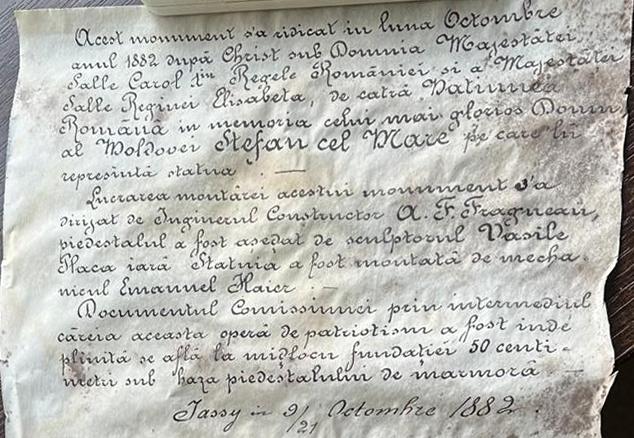 Acest monument s'a ridicat in luna Octombre
anul 1882 după Christ sub Domnia Majestăței
Salle Carol Iiu Regele României si a Majestăței
Salle Reginei Elisabeta, de catră Natiunea
Română in memoria celui mai glorios Domn,
al Moldovei Stefan cel Mare pe care lu
represintă statua. —
Lucrarea montărei acestui monument s'a
dirijat de Inginerul Constructor A. F. Fragneau,
piedestalul a fost asedat de sculptorul Vasile
Placa iară Statuia a fost montată de mecha-
nicul Emanuel Haier. —
Documentul Comissiunei prin intermediul
căreia aceasta operă de patriotism a fost inde
plinită se află la midlocu fundatiei 50 centi-
metri sub baza piedestalului de marmoră —
Iassy in 9/21 Octombre 1882.